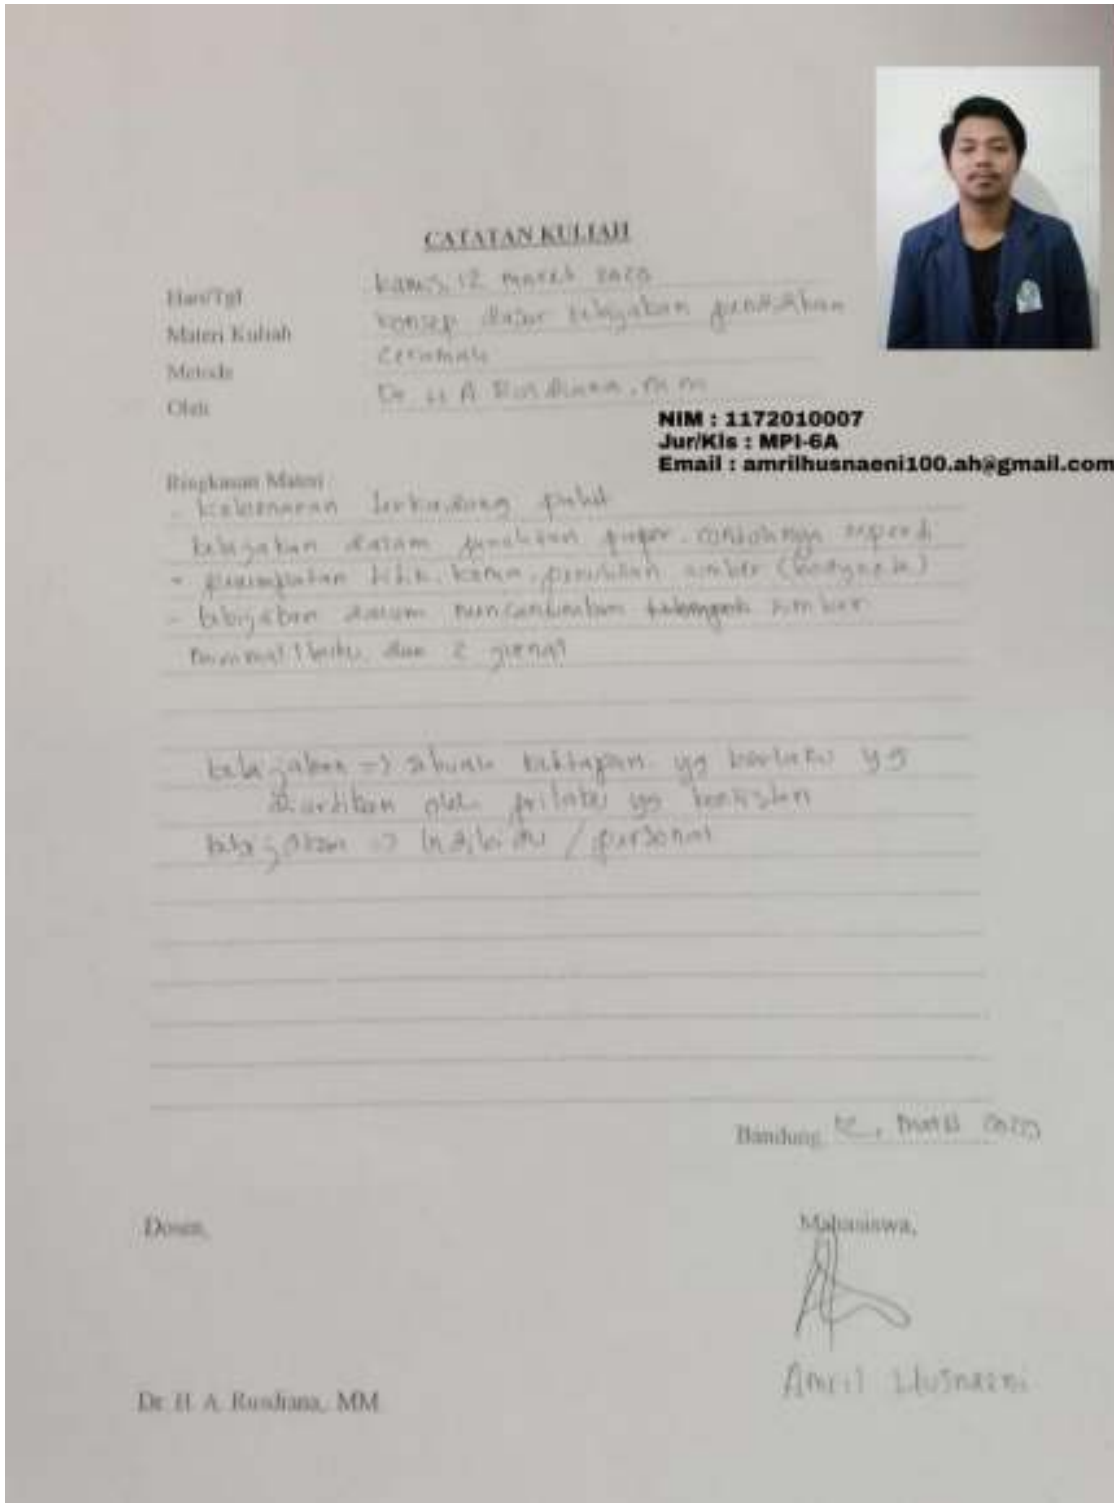 CATATAN KULIAH
Hari/Tgl kamis, 12 maret 2020
Materi Kuliah konsep dasar kebijakan pendidikan
Metode Ceramah
Oleh Dr H A Rusdiana, M M
NIM : 1172010007
Jur/Kls : MPI-6A
Email : amrilhusnaeni100.ah@gmail.com
Ringkasan Materi :
- kebenaran
kebijakan dalam contohnya seperti
- titik, koma, sumber
- kebijakan dalam mencantumkan sumber
minimal 1 buku dan 2 jurnal
kebijakan => sebuah ketetapan yg berlaku yg
oleh prilaku yg konsisten
kebijakan => individu / personal
Bandung 12, maret 2020
Dosen,
Mahasiswa,
Amril Husnaeni
Dr. H. A. Rusdiana, MM